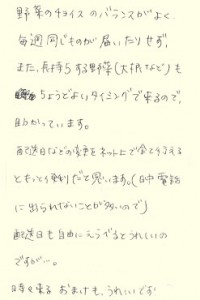 野菜のチョイスのバランスがよく
毎週同じものが届いたりせず、
また、長持ちする野菜(大根など)も
ちょうどよいタイミングで来るので、
助かっています。
配送日などの変更をネット上で全て行える
ともっと便利だと思います。(日中電話
に出られないことが多いので)
配送日も自由にえらべるとうれしいの
ですが…。
時々来る おまけも、うれしいです!